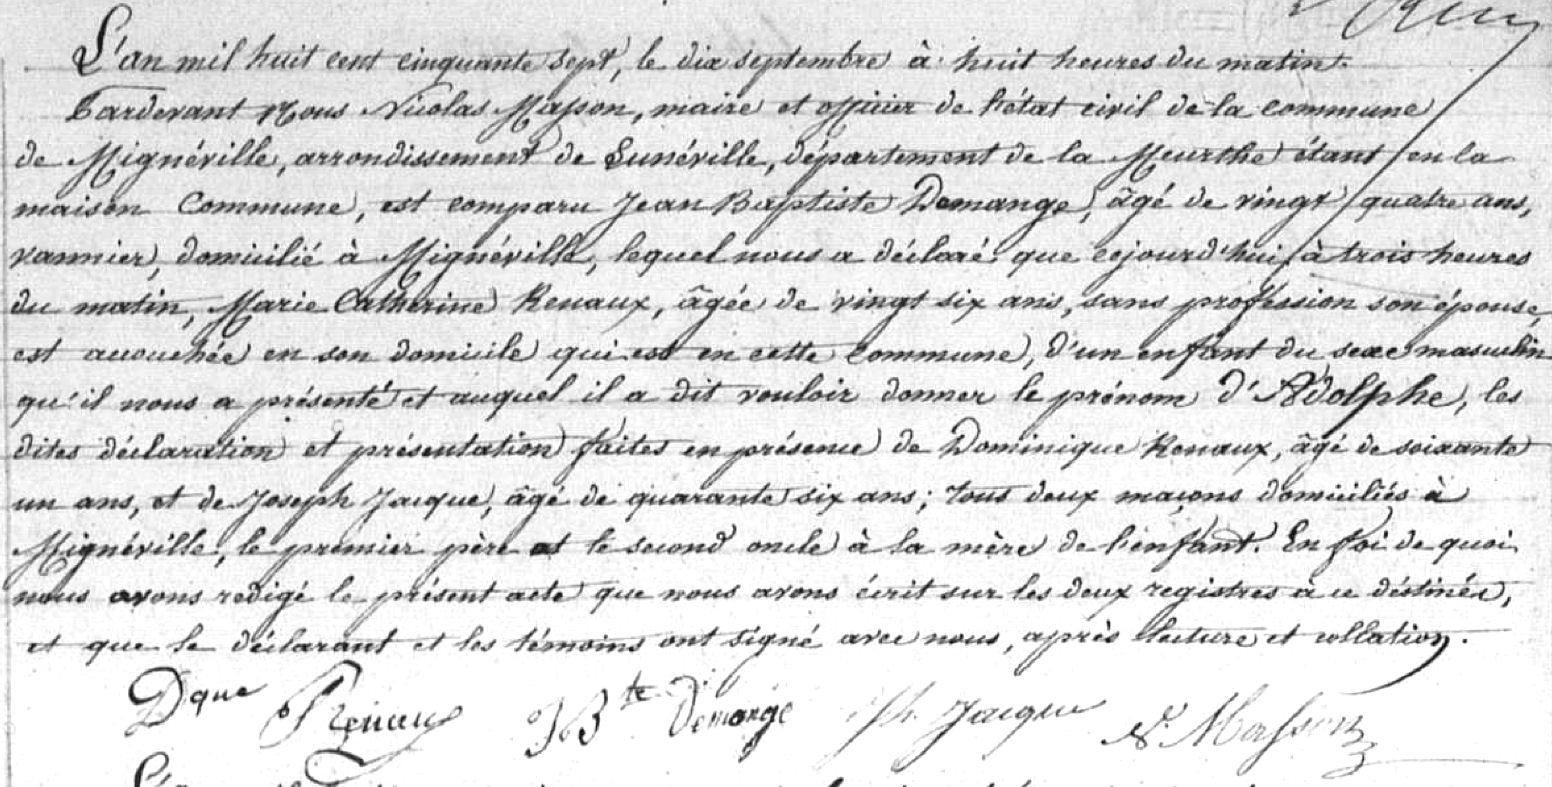 L'an mil huit cent cinquante sept, le dix septembre à huit heures du matin.
Pardevant Nous Nicolas Masson, maire et officier de l'état civil de la commune
de Mignéville, arrondissement de Lunéville, département de la Meurthe étant en la
maison Commune, est comparu Jean Baptiste Demange, âgé de vingt quatre ans,
vannier, domicilié à Mignéville, lequel nous a déclaré que cejourd'hui, à trois heures
du matin, Marie Catherine Renaux, âgée de vingt six ans, sans profession son épouse,
est accouchée en son domicile qui est en cette commune, d'un enfant du sexe masculin
qu'il nous a présenté et auquel il a dit vouloir donner le prénom d'Adolphe, les
dites déclaration et présentation faites en présence de Dominique Renaux, âgé de soixante
un ans, et de Joseph Jacque, âgé de quarante six ans; tous deux maçons domiciliés à
Mignéville, le premier père et le second oncle à la mère de l'enfant. En foi de quoi
nous avons redigé le présent acte que nous avons écrit sur les deux registres à ce déstinés,
et que le déclarant et les témoins ont signé avec nous, après lecture et collation.
Dque Renaux JBte Demange Jph. Jacque N. Masson